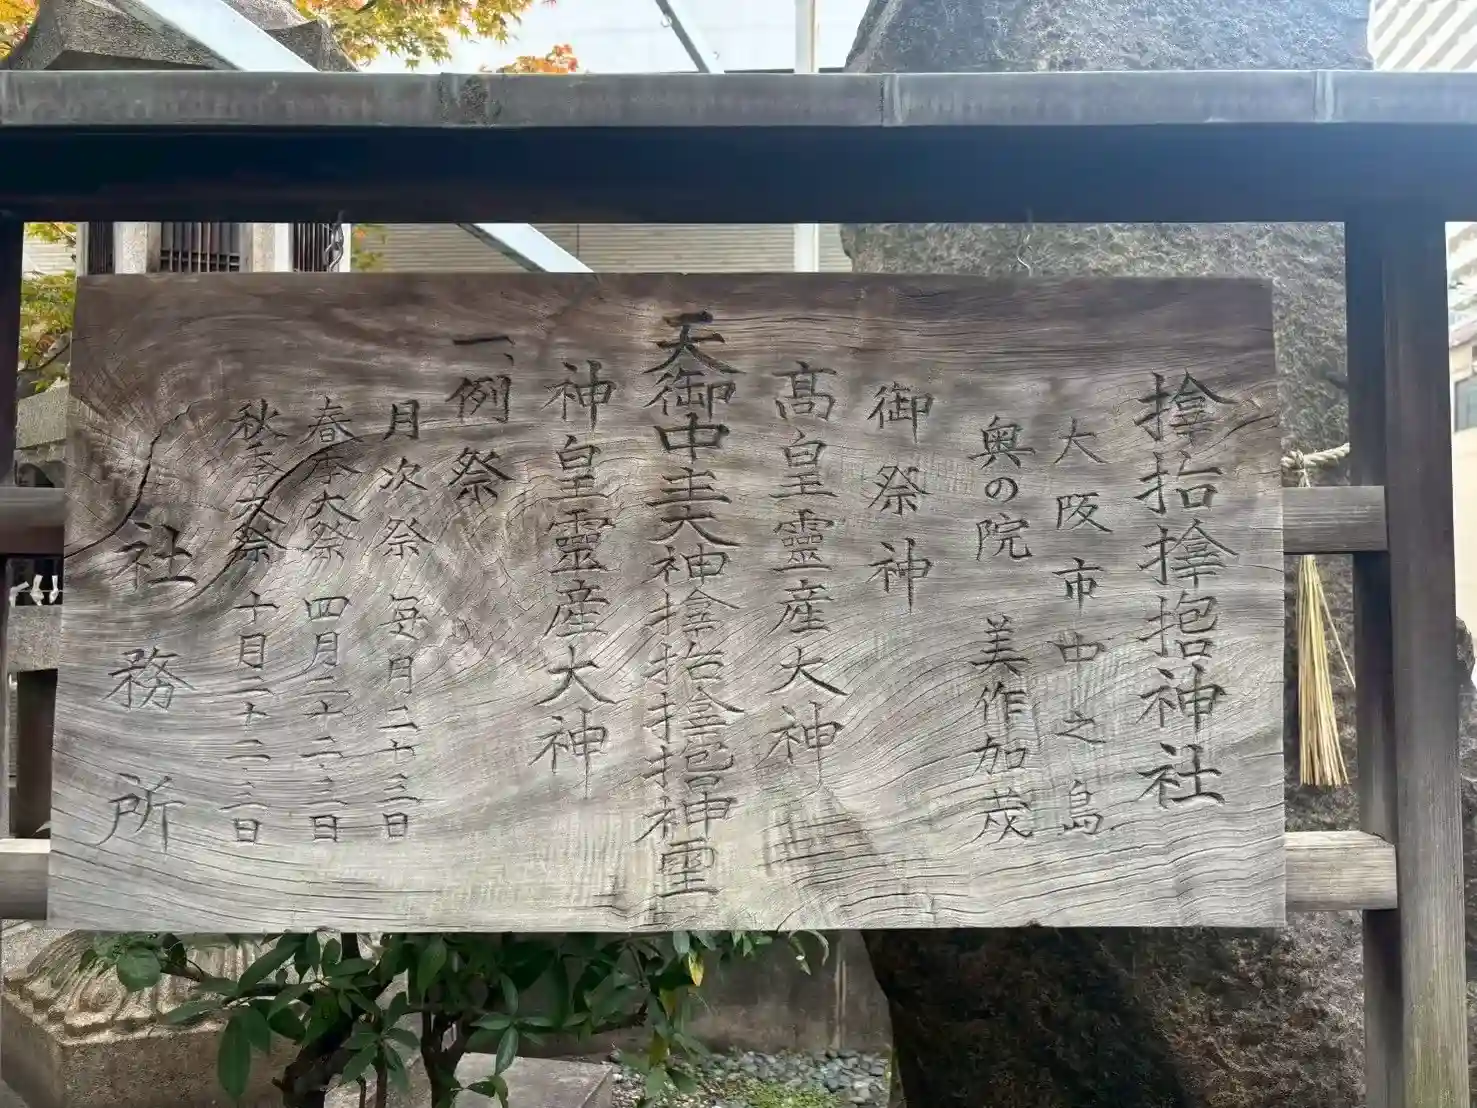 𪮷𫝼𪮷𪮇神社
大阪市中之島
奥の院 美作加茂
御祭神
高皇靈産大神
天御中主大神𪮷𫝼𪮷𪮇神霊
神皇靈産大神
一、例祭
月次祭 毎月二十三日
春季大祭 四月二十二・三日
秋季大祭 十日二十二・三日
社務所